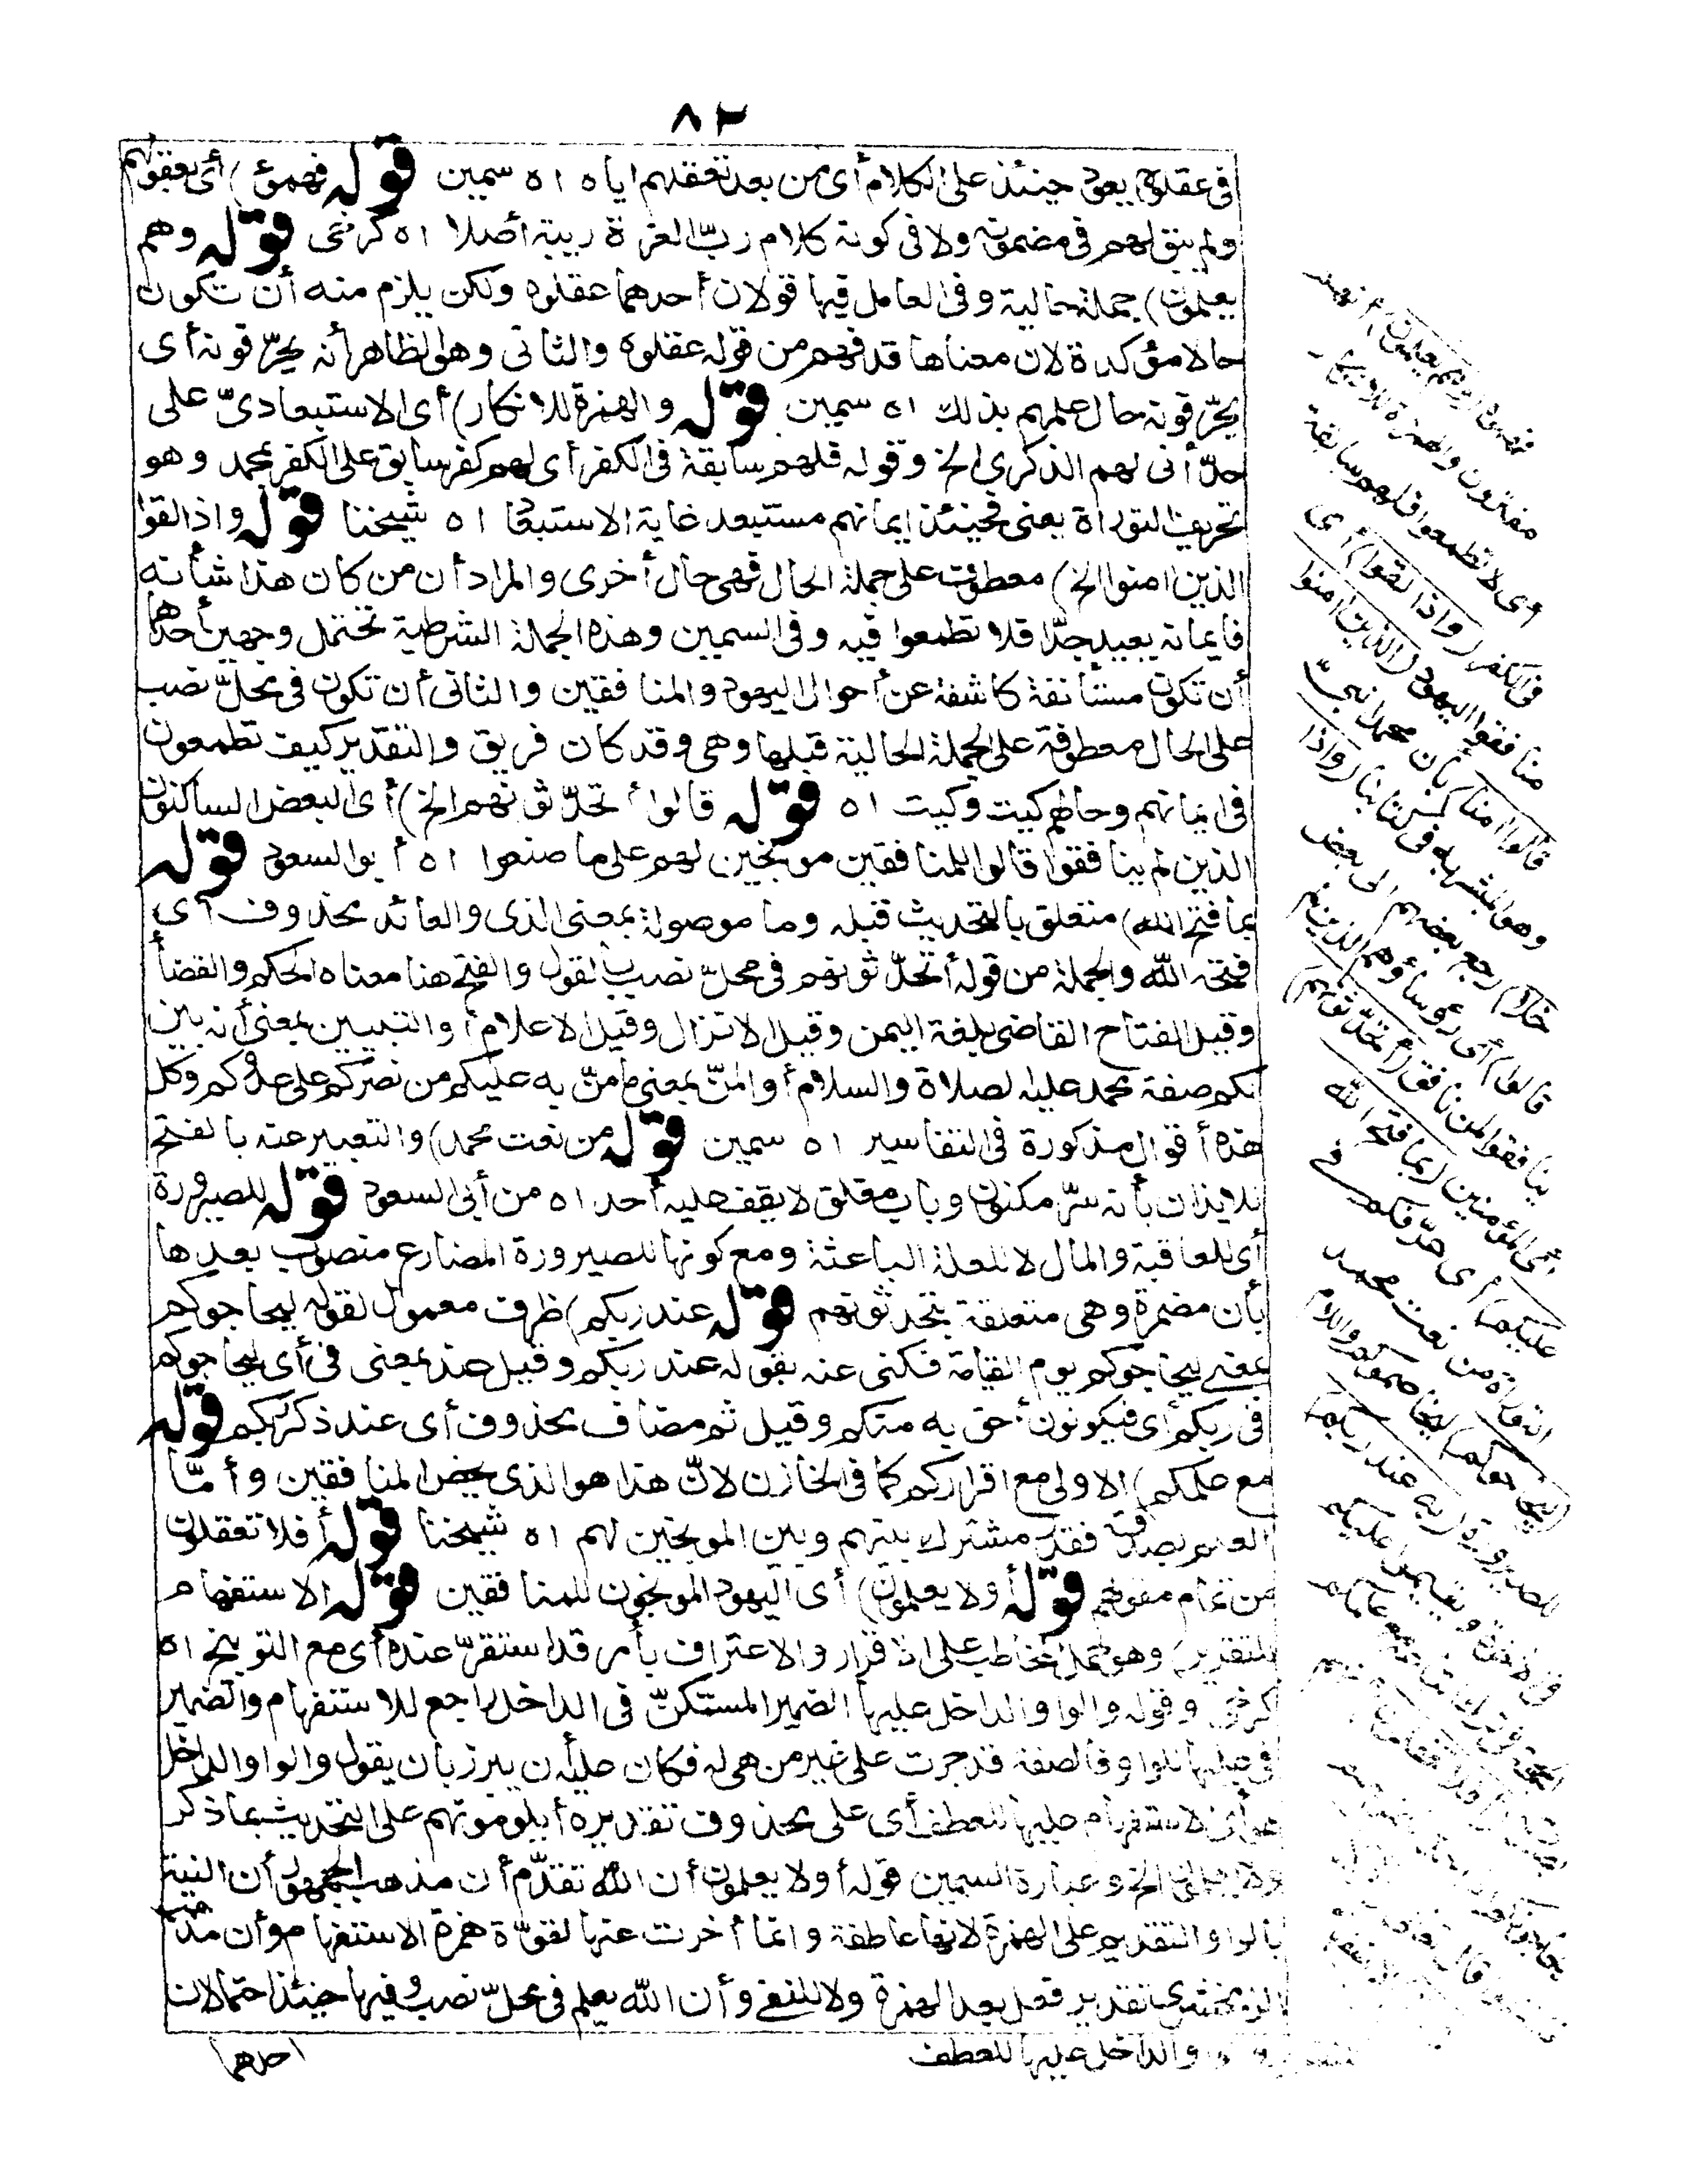 ٨٢
في عقلوه يعود حينئذ على الكلام أي من بعد تعقلهم اياه اه سمين قوله فهموه) أي بعقولهم
ولم يبق لهم في مضمونه ولا في كونه كلام ربّ العزة ريبة أصلا اه كرخى قوله وهم
يعلمون) جملة حالية وفى العامل فيها قولان أحدهما عقلوه ولكن يلزم منه أن تكون
حالا مؤكدة لان معناها قد فهم من قوله عقلوه والثانى وهو الظاهر أنه يحرّفونه أى
يحرّفونه حال علمهم بذلك اه سمين قوله والهمزة للانكار) أى الاستبعادىّ على
حدّ أنى لهم الذكرى الخ وقوله فلهم سابقة فى الكفر أى لهم كفر سابق على الكفر بمحمد وهو
تحريف التوراة يعنى فحينئذ ايمانهم مستبعد غاية الاستبعاد اه شيخنا قوله واذا لقوا
الذين امنوا الخ) معطوفة على جملة الحال فهى حال أخرى والمراد أن من كان هذا شأنه
فايمانه بعيد جدّا فلا تطمعوا فيه وفى السمين وهذه الجملة الشرطية تحتمل وجهين أحدهما
أن تكون مستأنفة كاشفة عن أحوال اليهود والمنافقين والثانى أن تكون فى محلّ نصب
على الحال معطوفة على الجملة الحالية قبلها وهى وقد كان فريق والتقدير كيف تطمعون
فى ايمانهم وحالهم كيت وكيت اه قوله قالوا أتحدّثونهم الخ) أى البعض الساكنون
الذين لم ينافقوا قالوا للمنافقين موبخين لهم على ما صنعوا اه أبو السعود قوله
بما فتح الله) متعلق بالتحديث قبله وما موصولة بمعنى الذى والعائد محذوف أى
فتحه الله والجملة من قوله أتحدّثونهم فى محلّ نصب بالقول والفتح هنا معناه الحكم والقضاأ
وقيل الفتاح القاضى بلغة اليمن وقيل الانزال وقيل الاعلام أو التبيين بمعنى أنه بين
لكم صفة محمد عليه الصلاة والسلام أو المنّ بمعنى ما منّ به عليكم من نصركم على عدوّكم وكل
هذه أقوال مذكورة فى التفاسير اه سمين قوله من نعت محمد) والتعبير عنه بالفتح
للايذان بأنه سرّ مكنون وباب مغلق لا يقف عليه أحد اه من أبى السعود قوله للصيرورة
أى للعاقبة والمال لا للعلة الباعثة ومع كونها للصيرورة المضارع منصوب بعدها
بأن مضمرة وهى متعلقة بتحدثونهم قوله عند ربكم) ظرف معمول لقوله ليحاجوكم
بمعنى ليحاجوكم يوم القيامة فكنى عنه بقوله عند ربكم وقيل عند بمعنى فى أى ليحاجوكم
فى ربكم أى فيكونون أحق به منكم وقيل ثم مضاف محذوف أى عند ذكر ربكم قوله
مع علمكم) الاولى مع اقراركم كما فى الخازن لانّ هذا هو الذى يخص المنافقين وأمّا
العلم بصدقه فقدر مشترك بينهم وبين الموبخين لهم اه شيخنا قوله أفلا تعقلون
من تمام مقولهم قوله أولا يعلمون) أى اليهود الموبخون للمنافقين قوله الاستفهام
للتقرير) وهو حمل المخاطب على الاقرار والاعتراف بأمر قد استقرّ عنده أى مع التوبيخ اه
كرخى وقوله والواو الداخل عليها الضمير المستكنّ فى الداخل راجع للاستفهام والضمير
فى عليها للواو فالصفة قد جرت على غير من هى له فكان عليه أن يبرز بان يقول والواو الداخل
هو أى الاستفهام عليها للعطف أى على محذوف تقديره أيلومونهم على التحديث بما ذكر
ولا يعلمون الخ وعبارة السمين قوله أولا يعلمون أن الله تقدّم أن مذهب الجمهور أن النية
بالواو التقديم على الهمزة لانها عاطفة وانما أخرت عنها لقوّة همزة الاستفهام وأن مذهب
الزمخشرى تقدير فعل بعد الهمزة ولا للنفى وأن الله يعلم فى محلّ نصب وفيها حينئذ احتمالان
احدهما
والداخل عليها للعطف
مفترون والهمزة للانكار
أى لا تطمعوا فلهم سابقة
فى الكفر (واذا لقوا) أى
منافقوا اليهود (الذين امنوا
قالوا امنا) بأن محمدا نبىّ
وهو المبشر به فى كتابنا (واذا
خلا) رجع بعضهم الى بعض
قالوا) أى رؤساؤهم الذين لم
ينافقوا لمن نافق (أتحدّثونهم)
أى المؤمنين (بما فتح الله
عليكم) أى عرّفكم فى
التوراة من نعت محمد
(ليحاجوكم) ليخاصموكم واللام
للصيرورة (به عند ربكم)
فى الاخرة ويقيموا عليكم